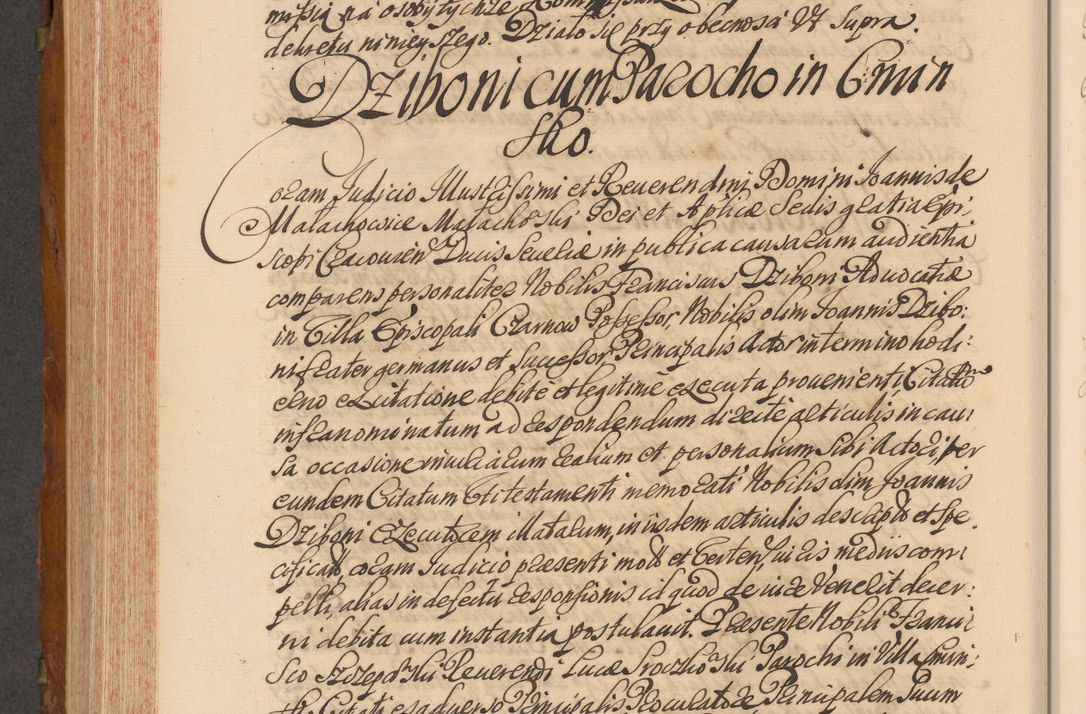 dekretu ninieyszego. Działo się przy obecnosci Vt Supra.
Dziboni cum Parocho in Cmin
sko.
Coram Judicio Illustrissimi et Reuerendmi Domini Joannis de
Małachowice Małachowski Dei et Aplicæ Sedis gratia Epi:
scopi Cracouien Ducis Seueriæ in publica causarum audientia
comparens personaliter Nobilis Franciscus Dziboni Aduocatiæ
in Villa Episcopali Czarnow Possessor, Nobilis olim Joannis Dzibo:
ni frater germanus et successor Principalis Actor in termino hodi:
erno ex citatione debite et legitime executa proueniente, Citatum
infranominatum ad respondendum directe articulis in cau:
sa occasione iniuriarum realium et personalium sibi Actori, per
eundem Citatum Vti testamenti memorati Nobilis olim Joannis
Dziboni Executorem illatarum, in iisdem articulis descripto et spe:
cificato, coram Judicio præsenti modo et Iuris medijs com:
pelli, alias in defectu responsionis id quod de iure venerit decer:
ni debita cum instantia postulauit. Præsente Nobili Franci:
sco Reuerendi Lucæ Parochi in Villa Cmin:
sko Citati ex aduerso Principalis Procuratore Principalem suum